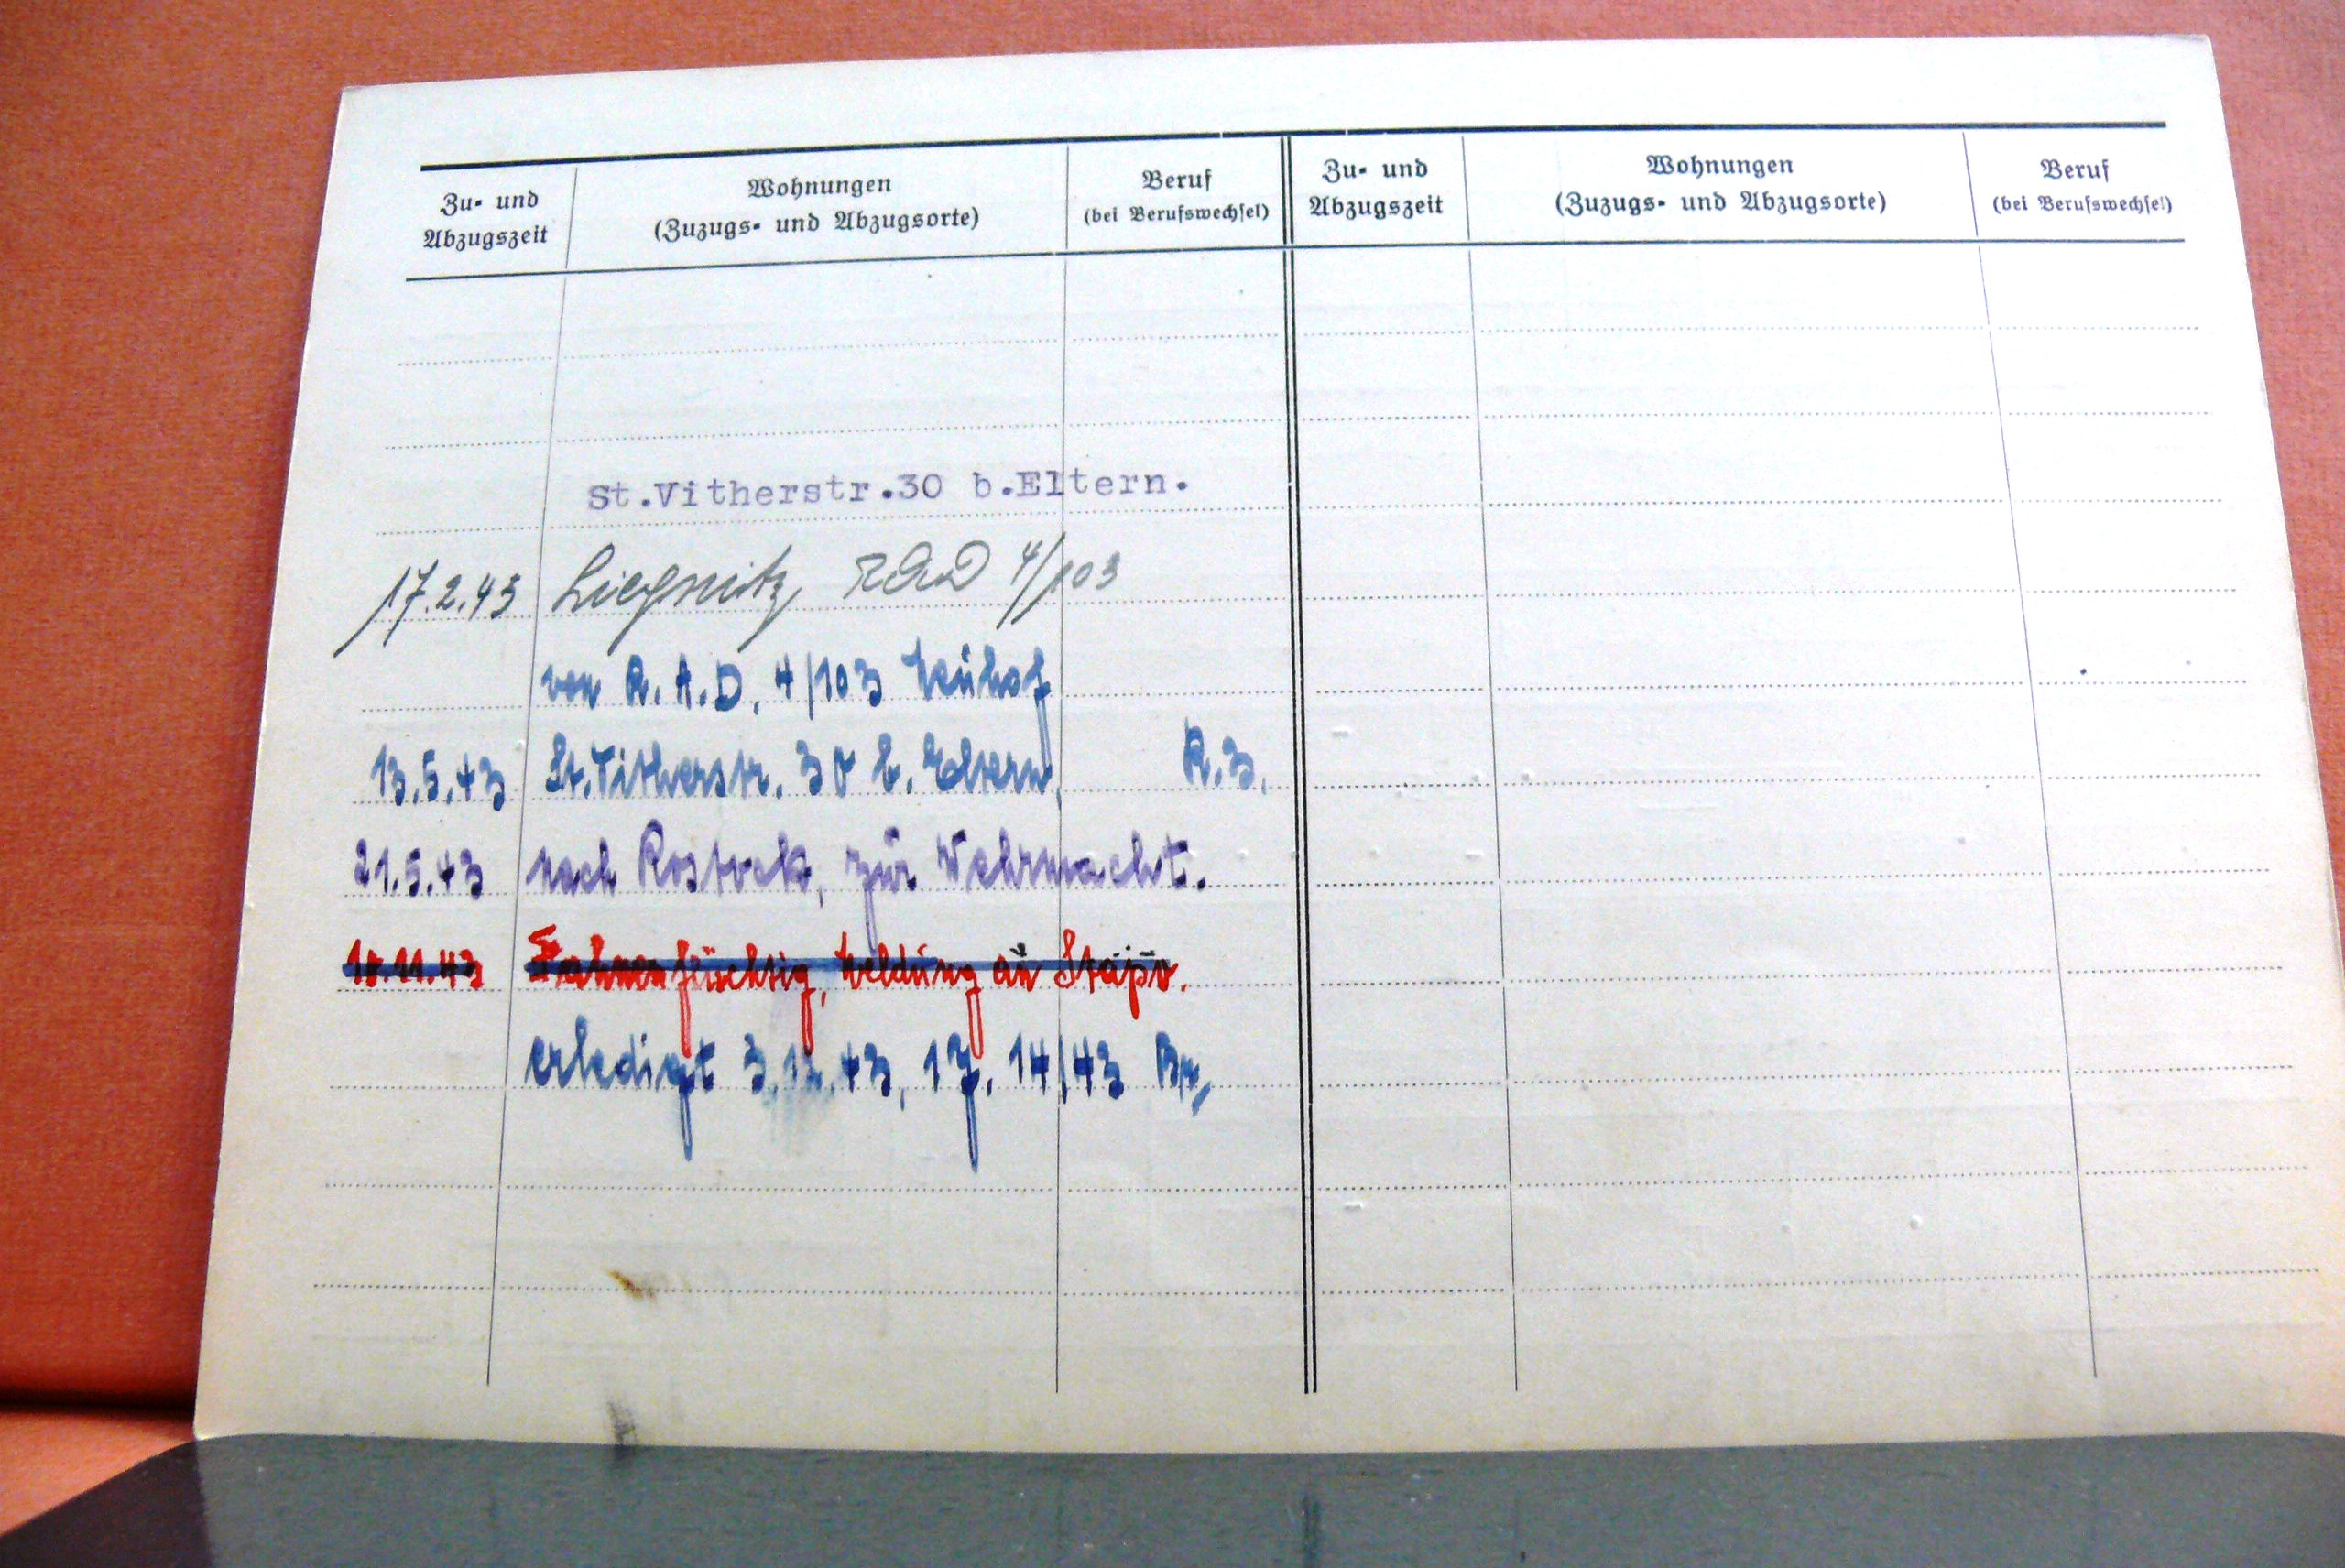 Zu- und Abzugszeit
Wohnungen (Zuzugs- und Abzugsorte)
Beruf (bei Berufswechsel)
Zu- und Abzugszeit
Wohnungen (Zuzugs- und Abzugsorte)
Beruf (bei Berufswechsel)
St.Vitherstr.30 b.Eltern.
17.2.43 Liegnitz RAD 4/103
von R.A.D. 4/103 Neuhof
13.5.43 St.Vitherstr. 30 b. Eltern. R.Z.
21.5.43 nach Rostock, zur Wehrmacht.
Fahnenflüchtig, Meldung an Stapo.
erledigt 3.12.43, 14/43 Br.